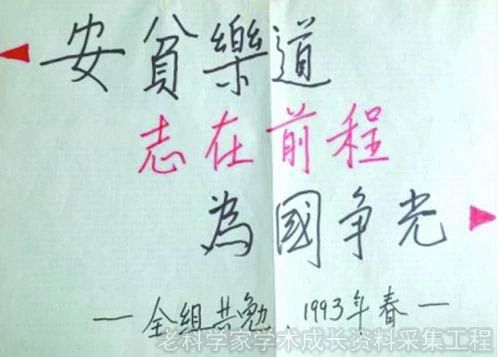 安貧樂道
志在前程
為國争光
— 全组共勉、1993年春 —
老科学家学术成长资料采集工程